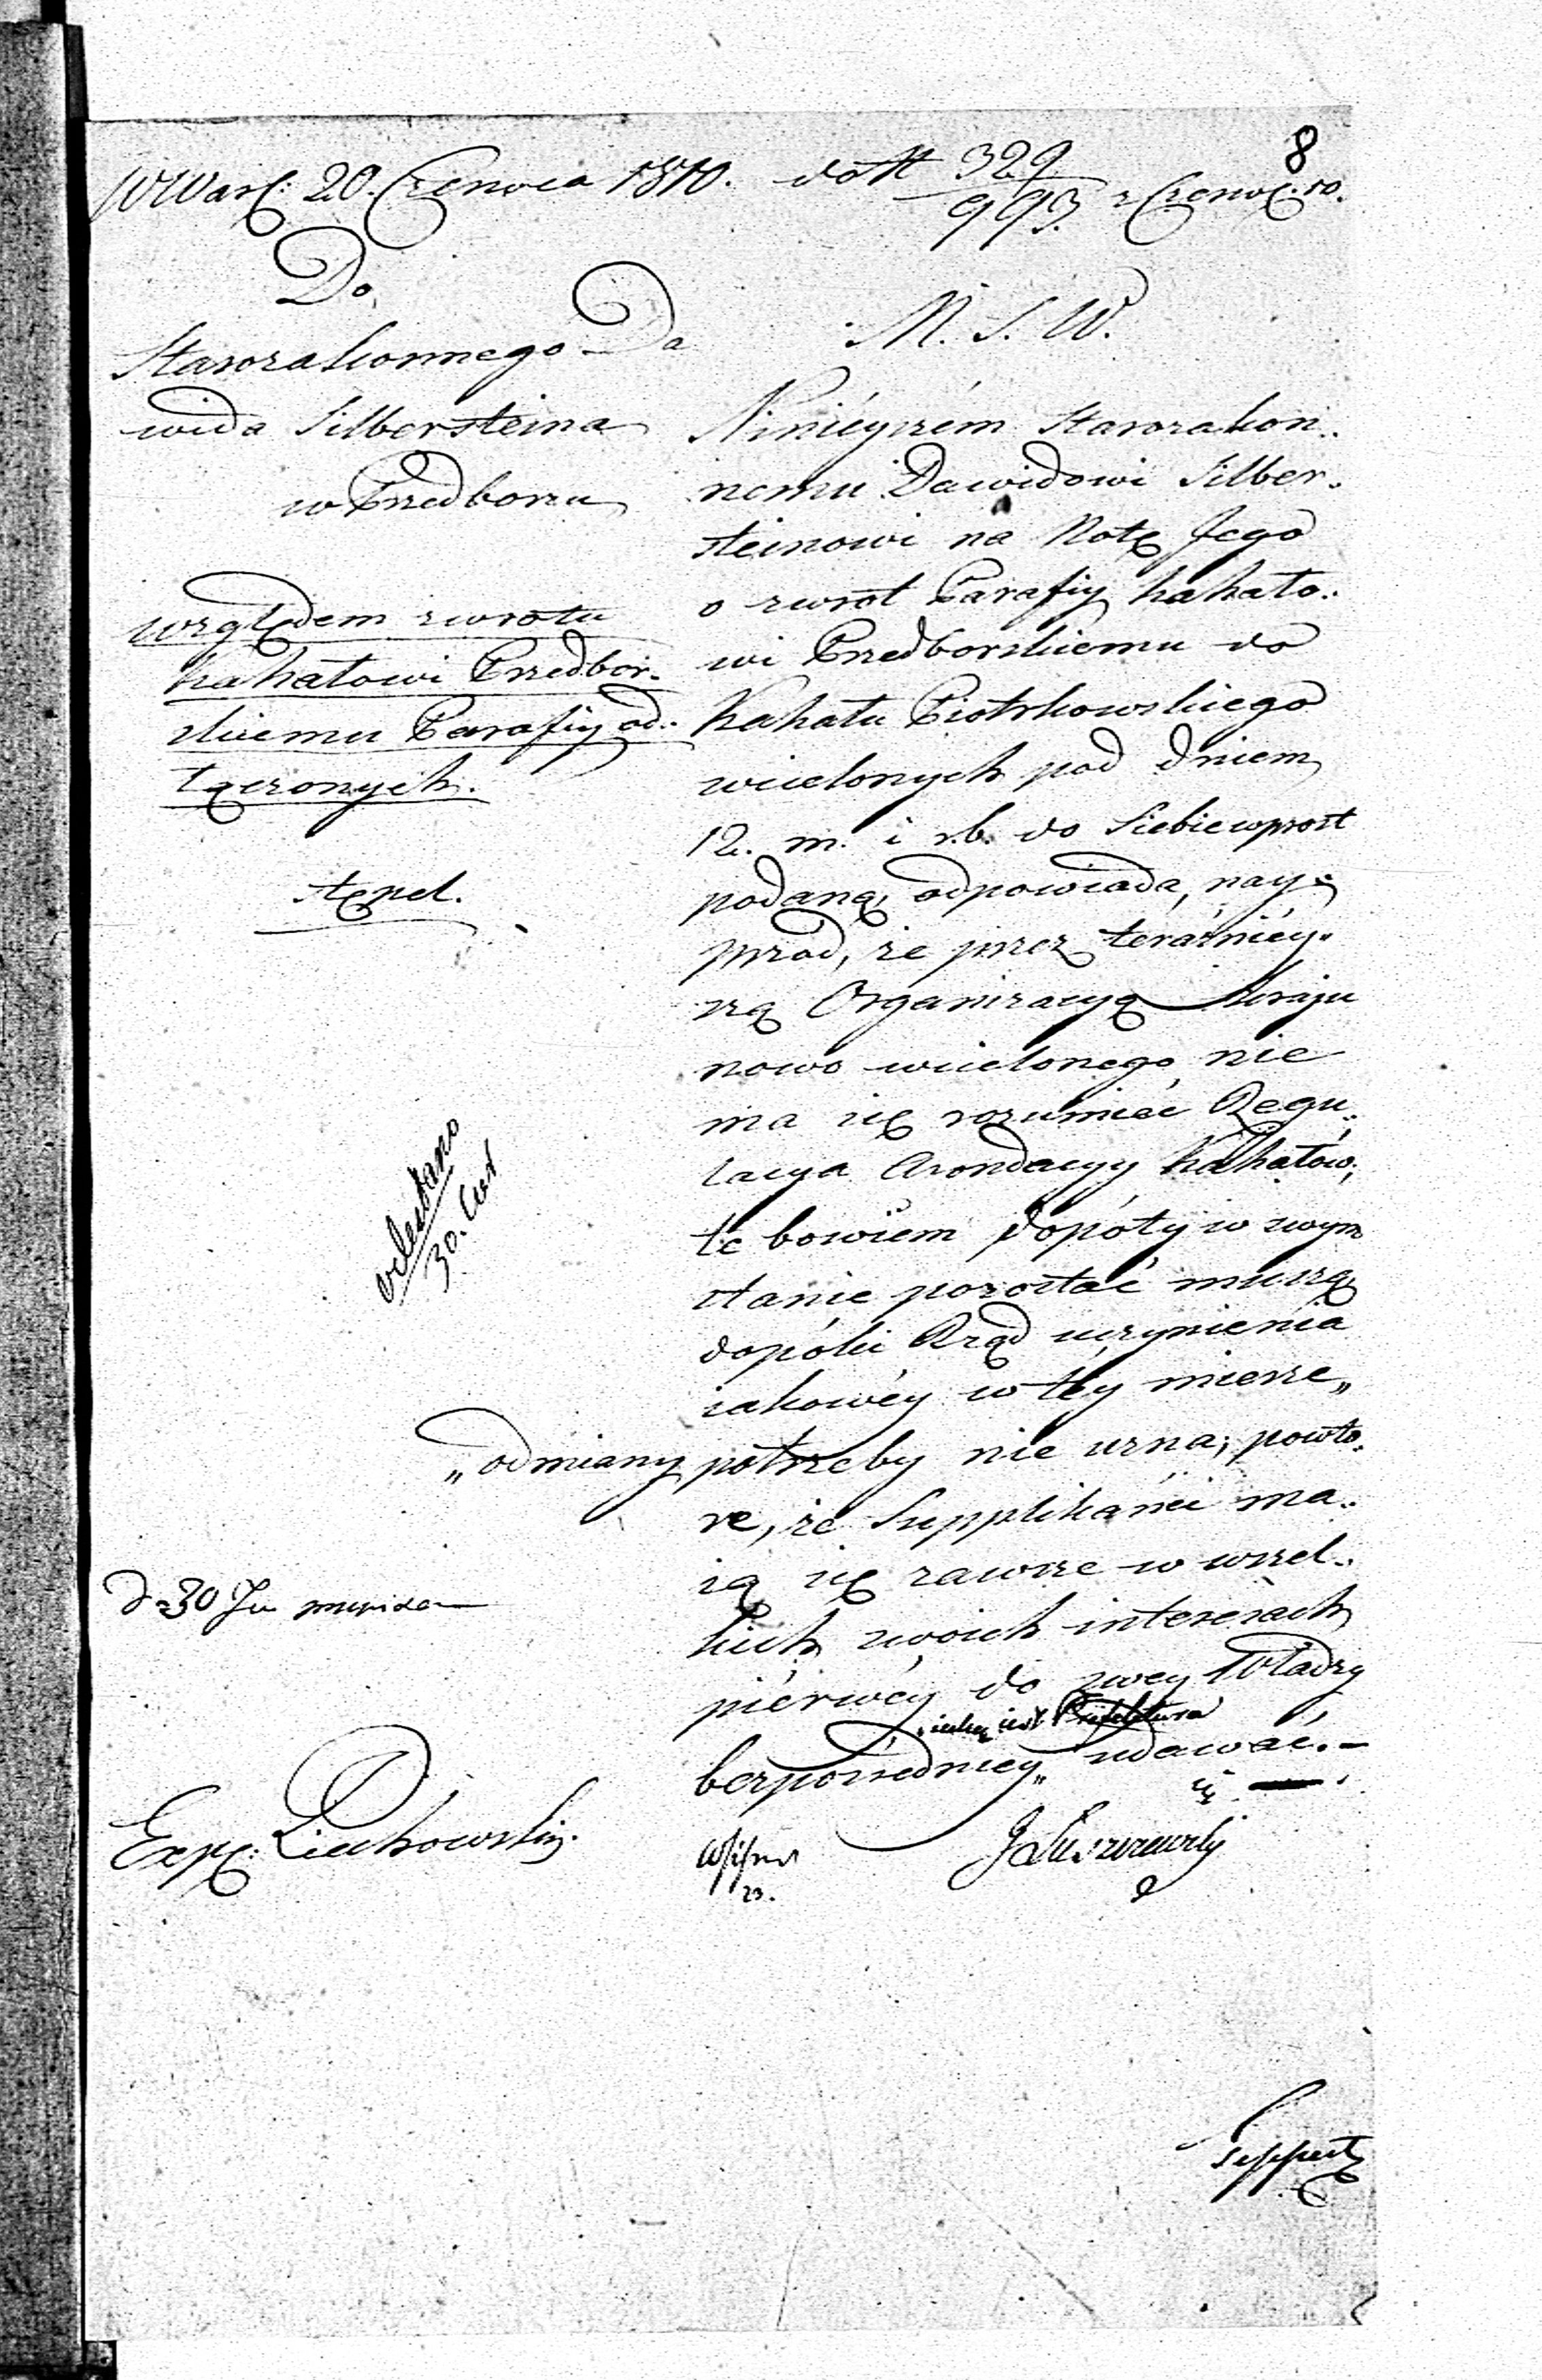 8
W Wars: 20. Czerwca 1810. do N 329/993. z Czerwc. 10.
Do
Starozakonnego Da
wida Silbersteina
w Przedborzu
względem zwrotu
kahałowi Przedbor-
skiemu Parafiy od-
łączonych.
stępel.
M. S. W.
Ninieyszém Starozakon-
nemu Dawidowi Silber-
steinowi na Notę Jego
o zwrot Parafiy kahało-
wi Przedborskiemu do
Kahału Piotrkowskiego
wcielonych pod dniem
12. m. i r. b. do Siebie wprost
podaną, odpowiada, nay-
przód, że przez teraźniéy-
szą Organizacyą kraju
nowo wcielonego nie
ma się rozumieć Regu-
lacya Arondacyy Kahałów;
te bowiem dopóty w swym
stanie pozostać muszą
dopóki Rząd uczynienia
iakowéy w téy mierze „
„ odmiany potrzeby nie uzna; powtó-
re, że Supplikańci ma-
ią się zawsze w wszel-
kich swoich interesach
piérwéy do swey Władzy
„ iaką iest Prefektura
bezpośredniey „ udawać. –
oddano
30.
d. 30 Ju
Exp: Ziechowski.
23.
JŁuszczewski